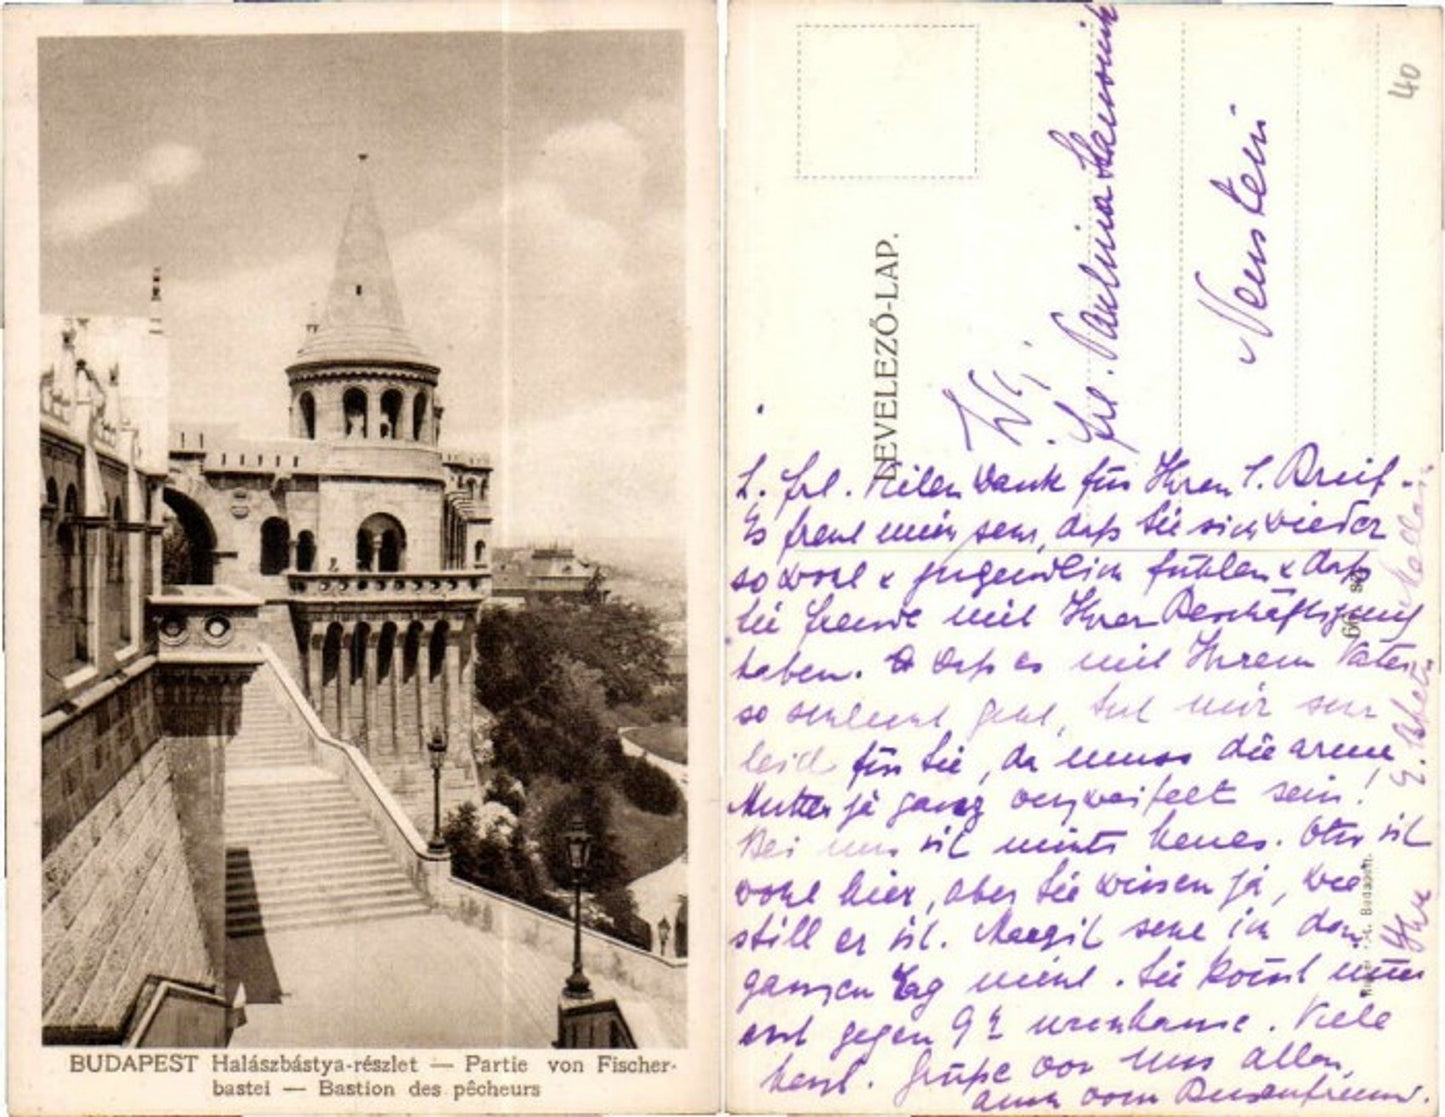 BUDAPEST Halászbástya-részlet — Partie von Fischer-
bastei — Bastion des pêcheurs
LEVELEZŐ-LAP.
40
Frl. Paulina
Neustein
L. Frl. Vielen Dank für Ihren l. Brief.
Es freut mich sehr, daß Sie sich wieder
so wohl & jugendlich fühlen & daß
Sie Freude mit Ihrer Beschäftigung
haben. Daß es mit Ihrem Vater
so schlecht geht, tut mir sehr
leid für Sie, da muss die arme
Mutter ja ganz verzweifelt sein!
Bei uns ist nichts neues. Otto ist
wohl hier, aber Sie wissen ja, wie
still er ist. Margit sehe ich den
ganzen Tag nicht. Sie kommt immer
erst gegen 9 nachhause. Viele
herzl. Grüße von uns allen,
auch vom
Ihre
Budapest.